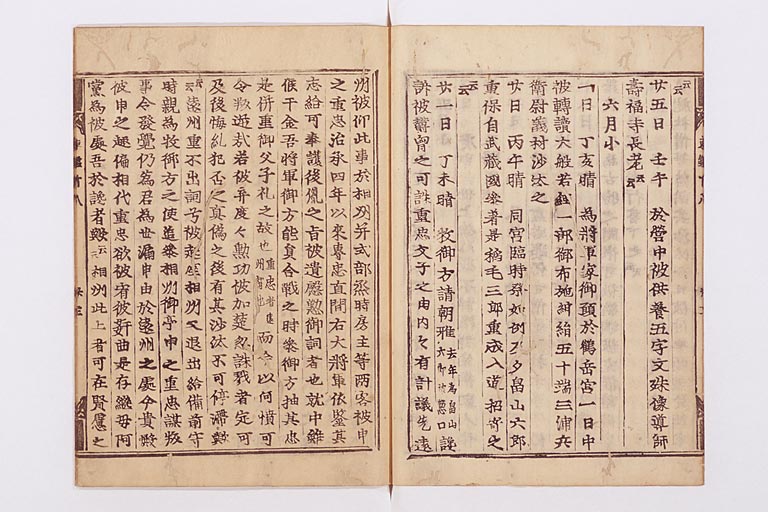 廿五日 壬午 於營中被供養五字文殊像導師
壽福寺長老云云
六月小
一日 丁亥晴 為將軍家御願於鶴岳宮一日中
被轉讀大般若經一部御布施紺絹五十端三浦兵
衛尉義村沙汰之
廿日 丙午晴 同宮臨時祭如例及夕畠山六郎
重保自武藏國參著是稲毛三郎重成入道招寄之
云云
廿一日 丁未晴 牧御方請朝雅去年為畠山六郎被惡口讒
訴被欝胷之可誅重忠父子之由内々有計議先遠
州被仰此事於相州并式部丞時房主等兩客被申
之重忠治承四年以來專忠直間右大將軍依鑒其
志給可奉護後胤之旨被遺慇懃御詞者也就中雖
候于金吾將軍御方能員合戰之時參御方抽其忠
是併重御父子礼之故也重忠者遠州聟也而今以何憤可
令叛逆哉若被弃度々勲功被加楚忽誅戮者定可
及後悔糺犯否之真僞之後有其沙汰不可停滯歟
云云遠州重不出詞被起座相州又退出給備前守
時親為牧御方之使追參相州御亭申之重忠謀叛
事令發覺仍為君為世漏申由於遠州之處今貴殿
被申之趣偏相代重忠欲被宥彼奸曲是存継母阿
黨為被處吾於讒者歟云云相州此上者可在賢慮之